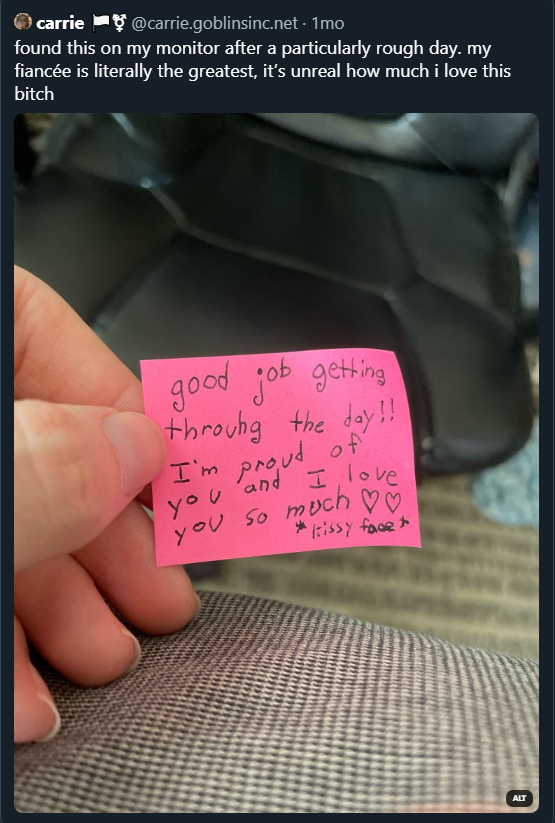 carrie 🏳️‍⚧️ @carrie.goblinsinc.net · 1mo
found this on my monitor after a particularly rough day. my
fiancée is literally the greatest, it’s unreal how much i love this
bitch
good job getting
throuhg the day!!
I'm proud of
you and I love
you so much ♡♡
*kissy face*
ALT